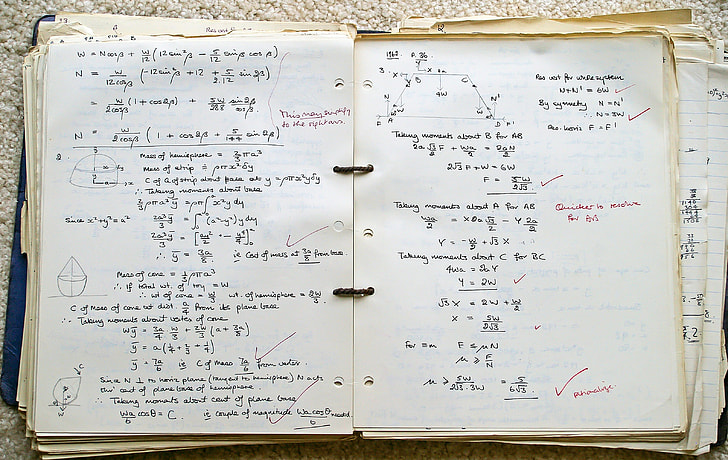 W = N cos β + W/12 (12 sin²β − 5/12 sin β cos β)
N = W/12cosβ (−12 sin²β + 12 + 5/2.12 sin 2β)
= W/2cosβ (1 + cos 2β) + 5W/288 sin 2β/cos β
N = W/2cosβ (1 + cos 2β + 5/144 sin 2β)
This may simplify
to the right ans.
2.
Mass of hemisphere = 2/3 πa³
Mass of strip = ρπx²δy
C of G of strip about base at y = ρπx²yδy
∴ Taking moments about base
2/3 ρπa³ȳ = ρπ∫x²y dy
Since x²+y² = a²
2a³ȳ/3 = ∫₀ᵃ (a²−y²)y dy
2a³ȳ/3 = [ay²/2 − y⁴/4]₀ᵃ
∴ ȳ = 3a/8 ie C of mass at 3a/8 from base.
Mass of cone = 1/3 ρπa³
∴ If total wt. of toy = W
∴ wt of cone = W/3 wt. of hemisphere = 2W/3
C of Mass of cone at dist. a/4 from its plane base
∴ Taking moments about vertex of cone
Wȳ = 3a/4 W/3 + 2W/3 (a + 3a/8)
ȳ = a(1/4 + 2/3 + 1/4)
ȳ = 7a/6 ie C of mass 7a/6 from vertex.
Since N ⊥ to horiz plane (tangent to hemisphere) N acts
thro' cent of plane base of hemisphere
∴ Taking moments about cent of plane base
Wa/6 cos θ = C. ie couple of magnitude Wa cos θ/6 needed.
1962. P. 36
3.
4W
Res vert for whole system
N+N' = 6W
By symmetry N = N'
∴ N = 3W
Res. horiz F = F'
Taking moments about B for AB
2a√3/2 F + Wa/2 = 2aN/2
2√3 F + W = 6W
F = 5W/2√3
Taking moments about A for AB
Wa/2 = X 2a√3/2 − Y 2a/2
Quicker to resolve
for AB
Y = −W/2 + √3 X
Taking moments about C for BC
4Wa = 2a Y
Y = 2W
√3 X = 2W + W/2
X = 5W/2√3
For F ≤ μN
μ ≥ F/N
μ ≥ 5W/2√3.3W = 5/6√3
rationalize